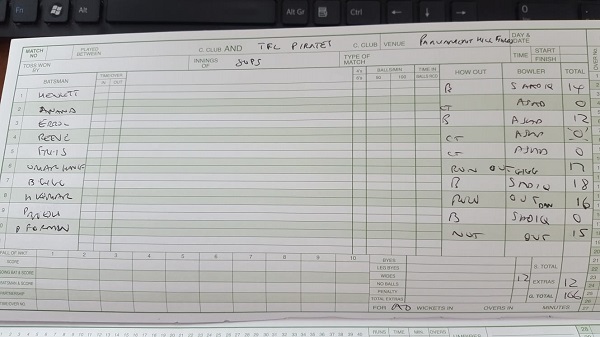 Ctrl Alt Alt Gr Ctrl
MATCH NO PLAYED BETWEEN C. CLUB AND TFL PIRATES C. CLUB VENUE PARLIAMENT HILL FIELDS DAY & DATE
TOSS WON BY INNINGS OF SUPS TYPE OF MATCH TIME START FINISH
BATSMAN TIME/OTHER IN OUT 4's 6's BALLS/MIN 50 100 TIME IN BALLS REC'D HOW OUT BOWLER TOTAL
1 HEWETT B SADIQ 14
2 ANAND CT ASAD 0
3 ERROL B ASAD 12
4 CT ASAD 0
5 CT ASAD 0
6 RUN OUT 17
7 B GIGG B SADIQ 18
8 H KUMAR RUN OUT 16
9 B SADIQ 0
10 P FORMAN NOT OUT 15
FALL OF WKT 1 2 3 4 5 6 7 8 9 10 BYES S. TOTAL
SCORE LEG BYES
WIDES 12 EXTRAS 12
NO BALLS
PENALTY G. TOTAL 166
TOTAL EXTRAS
FOR AO WICKETS IN OVERS IN MINUTES
RUNS TIME